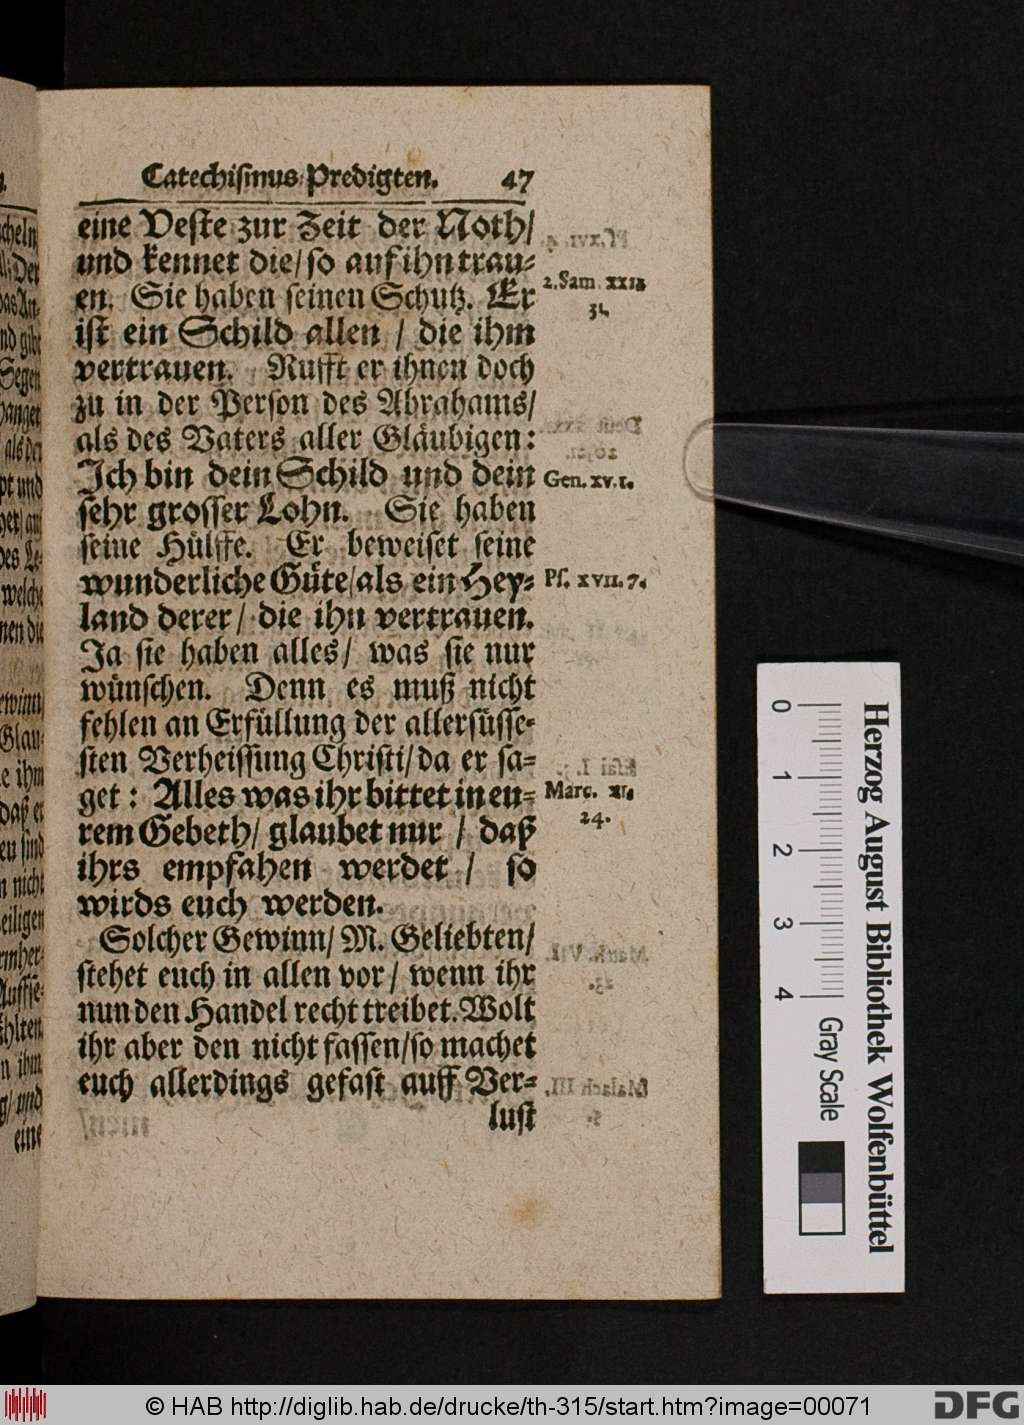 Catechiſmus Predigten. 47
eine Veſte zur Zeit der Noth/
und kennet die/ ſo auf ihn trau-
en. Sie haben ſeinen Schutz. Er
iſt ein Schild allen / die ihm
vertrauen. Rufft er ihnen doch
zu in der Perſon des Abrahams/
als des Vaters aller Gläubigen:
Ich bin dein Schild und dein
ſehr groſſer Lohn. Sie haben
ſeine Hülffe. Er beweiſet ſeine
wunderliche Güte/ als ein Hey-
land derer / die ihn vertrauen.
Ja ſie haben alles/ was ſie nur
wünſchen. Denn es muß nicht
fehlen an Erfüllung der allerſüſſe-
ſten Verheiſſung Chriſti/ da er ſa-
get: Alles was ihr bittet in eu-
rem Gebeth/ glaubet nur / daß
ihrs empfahen werdet / ſo
wirds euch werden.
Solcher Gewinn/ M. Geliebten/
ſtehet euch in allen vor / wenn ihr
nun den Handel recht treibet. Wolt
ihr aber den nicht faſſen/ ſo machet
euch allerdings gefaſt auff Ver-
luſt
2. Sam. xxii.
31.
Gen. xv. 1.
Pſ. xvii. 7.
Marc. xi.
24.
0 1 2 3 4
Gray Scale
Herzog August Bibliothek Wolfenbüttel
© HAB http://diglib.hab.de/drucke/th-315/start.htm?image=00071
DFG